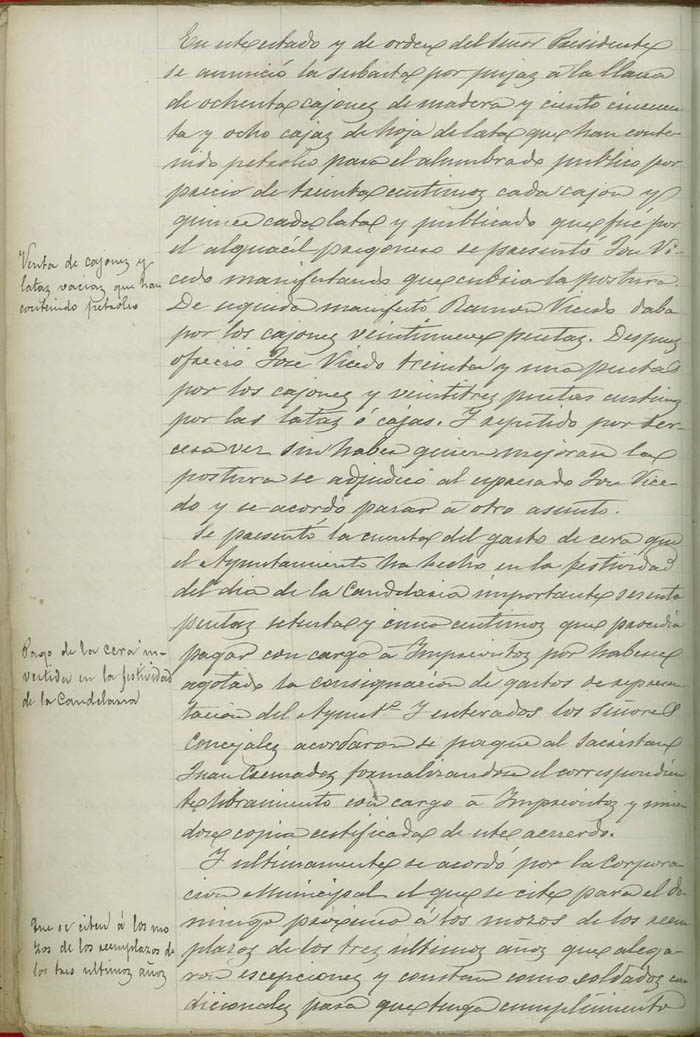 En este estado y de orden del Señor Presidente
se anunció la subasta por pujaz à la llana
de ochenta cajonez de madera y ciento cincuen
ta y ocho cajaz de hoja de lata que han conte
nido petroleo para el alumbrado publico por
precio de treinta centimoz cada cajon y
quince cada lata y publicado que fué por
el alguacil pregonero se presentó José Vi
cedo manifestando que cubria la postura.
De seguida manifestó Ramon Vicedo daba
por los cajonez veintinueve pesetaz. Despuez
ofreció José Vicedo treinta y una peseta
por los cajonez y veintitrez pesetas
por las lataz ó cajas. Y repetido por ter-
cera vez sin haber quien mejorara la
postura se adjudicó al espresado José Vice-
do y se acordó pasar à otro asunto.
Se presentó la cuenta del gasto de cera que
el Ayuntamiento ha hecho en la festividad
del dia de la Candelaria importante sesenta
pesetaz setenta y cinco centimoz que procedia
pagar con cargo à Imprevistoz por haberse
agotado la consignacion de gastos de represen
tacion del Ayunt.º Y enterados los Señores
Concejalez acordaron se pague al Sacristan
Juan formalizandose el correspondien
te libramiento con cargo à Imprevistoz y
copia certificada de este acuerdo.
Y ultimamente se acordó por la Corpora
cion Municipal el que se cite para el do
mingo proximo à los mozos de los reem
plazos de los trez ultimoz añoz que alega
ron escepcionez y constan como soldadoz con
dicionalez para que tenga cumplimiento
Venta de cajonez y
lataz vaciaz que han
contenido petroleo
Pago de la cera in-
vertida en la festividad
de la Candelaria
Que se citen á los mo
zos de los reemplazos de
los tres ultimos añoz